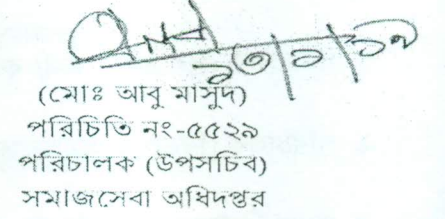 (মোঃ আবু মাসুদ)
পরিচিতি নং-৫৫২৯
পরিচালক (উপসচিব)
সমাজসেবা অধিদপ্তর